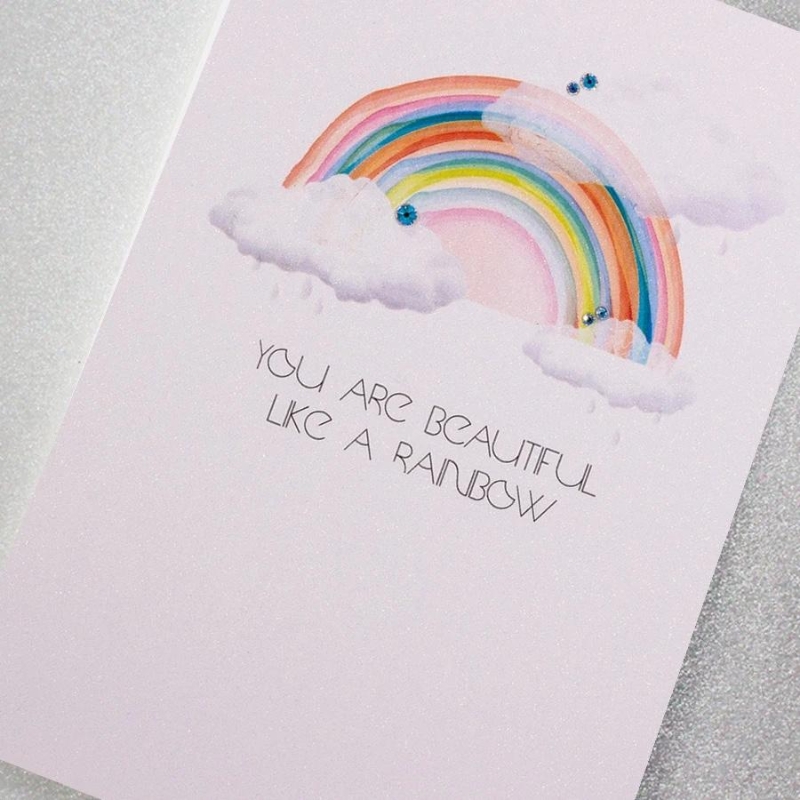 YOU ARE BEAUTIFUL
LIKE A RAINBOW